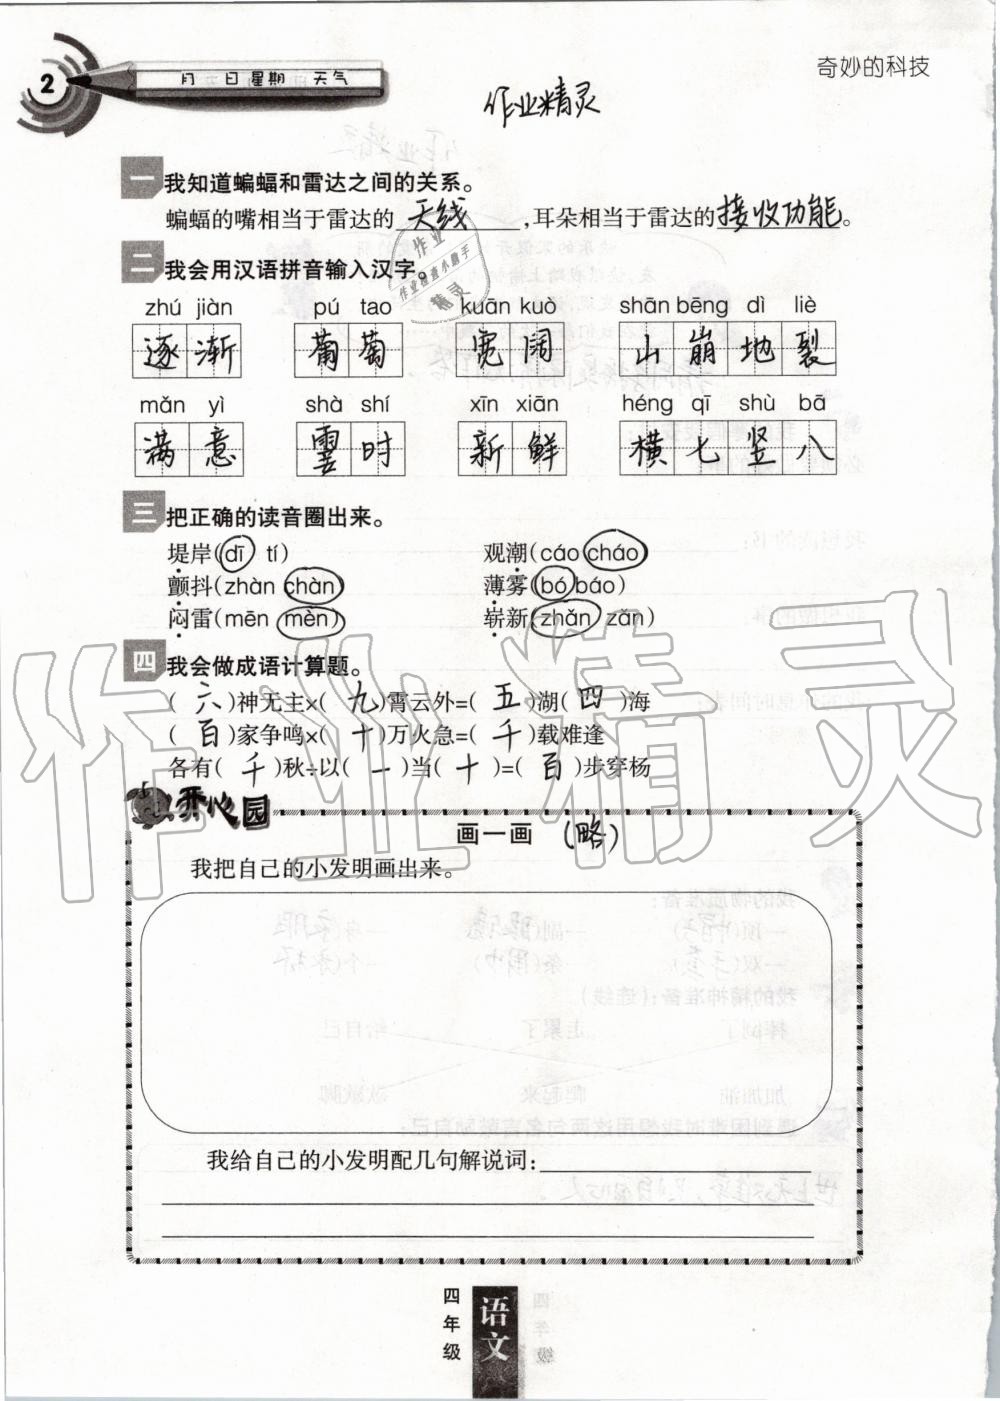 2
月 日 星期 天气
奇妙的科技
作业精灵
一 我知道蝙蝠和雷达之间的关系。
蝙蝠的嘴相当于雷达的 天线 ,耳朵相当于雷达的接收功能。
二 我会用汉语拼音输入汉字。
zhú jiàn pú tao kuān kuò shān bēng dì liè
逐渐 葡萄 宽阔 山崩地裂
mǎn yì shà shí xīn xiān héng qī shù bā
满意 霎时 新鲜 横七竖八
三 把正确的读音圈出来。
堤岸(dī tí) 观潮(cáo cháo)
颤抖(zhàn chàn) 薄雾(bó báo)
闷雷(mēn mèn) 崭新(zhǎn zǎn)
四 我会做成语计算题。
( 六 )神无主×( 九 )霄云外=( 五 )湖( 四 )海
( 百 )家争鸣×( 十 )万火急=( 千 )载难逢
各有( 千 )秋÷以( 一 )当( 十 )=( 百 )步穿杨
开心园
画一画 (略)
我把自己的小发明画出来。
我给自己的小发明配几句解说词:
四年级 语文
作业精灵
作业
作业检查小助手
精灵